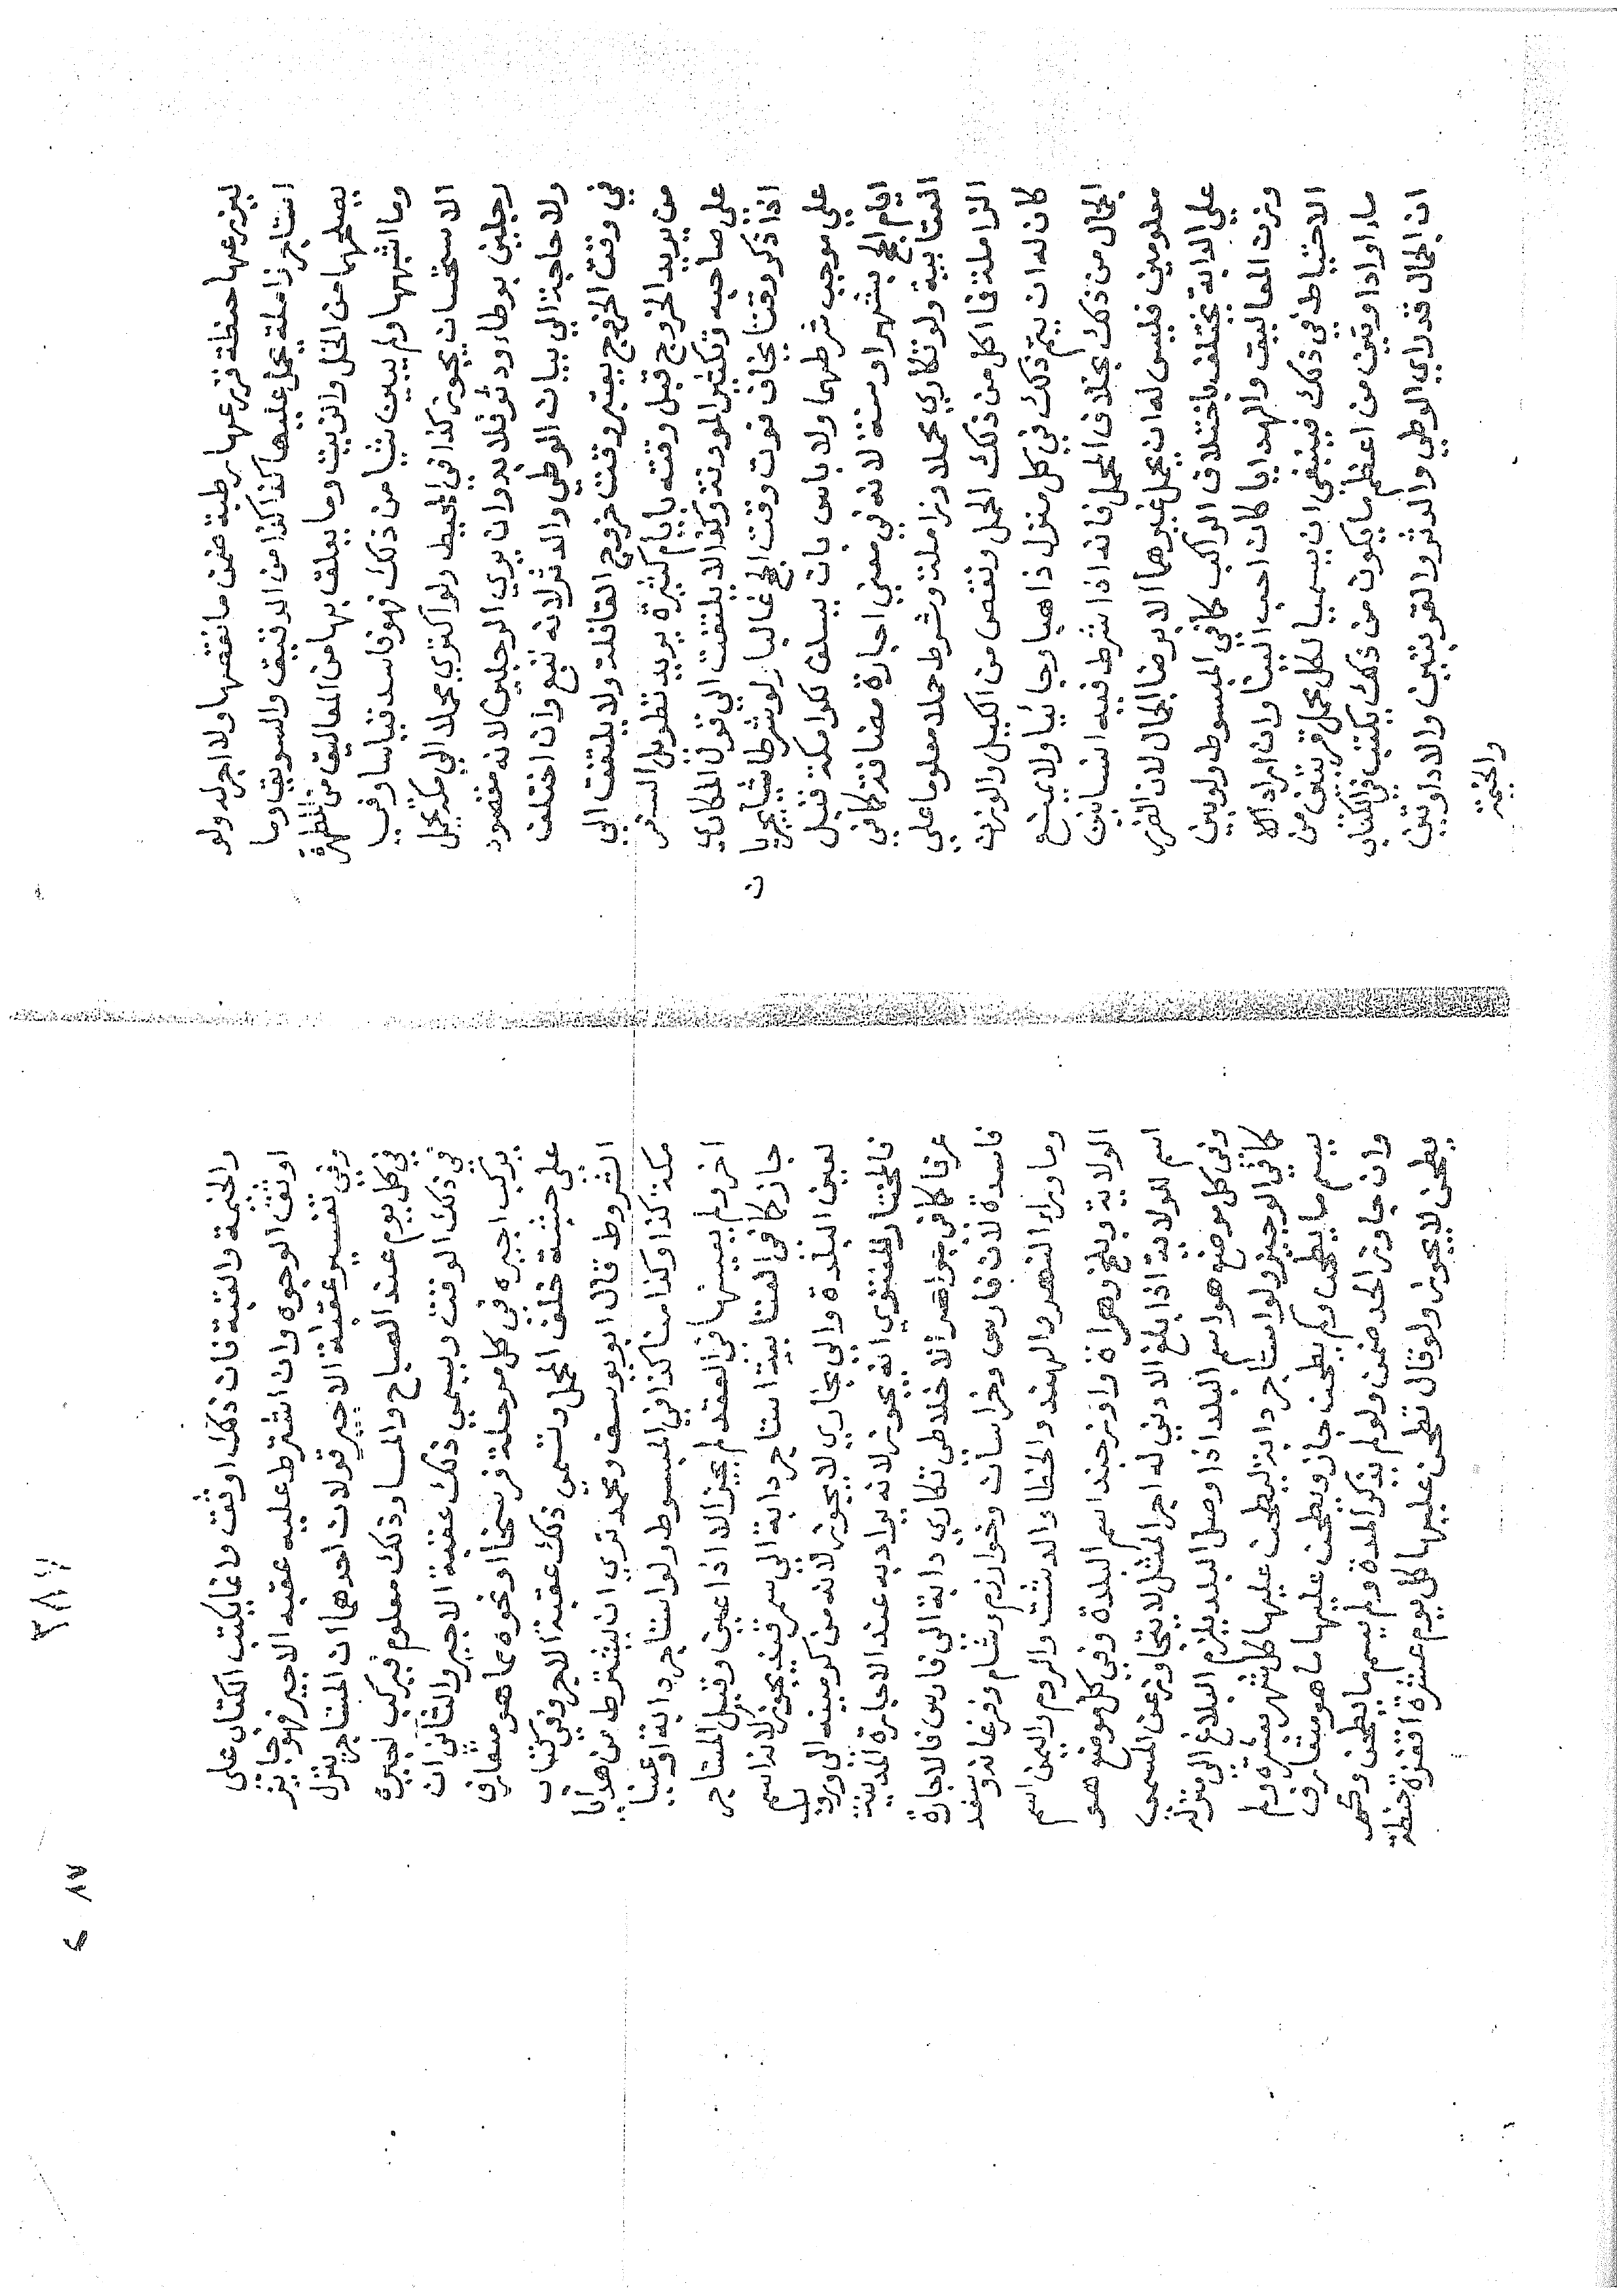 ليزرعها حنطة فزرعها رطبة ضمن ما نقصها ولا اجر له ولو
استاجر زاملة يحمل عليها كذا كذا من الدقيق والسويق وما
يصلحهما من الخل والزيت وما يعلق بها من المعاليق من المطهرة
وما اشبهها ولم يبين شيا من ذلك فهو فاسد قياسا وفي
الاستحسان يجوز كذا في المحيط ولو اكتري محملا الي مكة يحمل
رجلين بوطاء ودثر فلا بد وان يري الرجلين لانه مقصود
ولا حاجة الي بيان الوطي والدثر لانه تبع وان اختلف
في وقت الخروج يعتبر وقت خروج القافلة ولا يلتفت الي
من يريد الخروج قبل وقته بايام كثيرة يريد تطويل السفر
علي صاحبه وتكثير المودنة وكذا لا يلتفت الي قول المكاري
اذا ذكر وقتا يخاف فوت وقت الحج غالبا ولو شرطا شيا يجريا
علي موجب شرطهما ولا باس بان يسلف لكرا مكة قبل
ايام الحج بشهر او سنة لانه في معني اجارة مضافة كما في
العتابية ولو تكاري محملا وزاملة وشرط حملا معلوما علي
الزاملة فما اكل من ذلك الحمل ونقص من الكيل والوزن
كان له ان يتم ذلك في كل منزل ذاهبا وجائيا ولا يمنع
الجمال من ذلك بخلاف المحمل فانه اذا شرط فيه انسانين
معلومين فليس له ان يحمل غيرهما الا برضا الجمال لان الضرر
علي الدابة يختلف باختلاف الراكب كما في المبسوط ولو بين
وزن المعاليق والهدايا كان احب الينا وان اراد
الاحتياط في ذلك فينبغي ان يسميا لكل محمل قربتين من
ماء او اداوتين من اعظم ما يكون من ذلك يكتب في الكتاب
ان الجمال قد راي الوطي والدثر والقربتين والاداوتين
والخيمة
والخيمة والقبة فان ذلك اوثق وانما يكتب الكتاب علي
اوثق الوجوه وان اشترط عليه عقبه الاجير فهو جايز
وفي تفسير عقبة الاجير قولان احدهما ان المستاجر ينزل
في كل يوم عند الصباح والمسا وذلك معلوم فيركب اجيره
في ذلك الوقت ويسمي ذلك عقبة الاجير والثاني ان
يركب اجيره في كل مرحلة فرسخا او نحوه مما هو متعارف
علي خشبة خلف المحمل وتسمي ذلك عقبة الاجر وفي كتاب
الشروط قال ابو يوسف ومحمد نري ان يشترط من هدايا
مكة كذا وكذا منا كذا في المبسوط ولو استاجر دابة او عينا
اخر ولم يعينها في العقد لم يجز الا اذا عين وقبل المستاجر
جاز كما في العتابية استاجر دابة الي سمرقند يجوز لانه اسم
لعين البلدة والي بخاري لا يجوز لانه من كرمينه الي فرب
فالمختار للفتوي انه يجوز لانه يراد به عند الاجارة المدينة
عرفا كما في جواهر الاخلاطي تكاري دابة الي فارس فالاجارة
فاسدة لان فارس وخراسان وخوارزم وشام وفرغانه وسغد
وما وراء النهر والهند والخطا والدشت والروم واليمن اسم
الولاية وبلخ وهراة واوزجند اسم البلدة وفي كل موضع هو
اسم للولاية اذا بلغ الادني له اجر المثل لا يتجاوز عن المسمي
وفي كل موضع هو اسم البلد اذا وصل البلد يلزم البلاغ الي منزله
كما في الوجيز ولو استاجر دابة ليطحن عليها كل شهر بعشرة ولم
يسم ما يطحن ولم يطحن جاز ويطحن عليها ما هو متعارف
وان جاوز الحد ضمن ولو لم يذكر المدة ولم يسم ما يطحن وكم
يطحن لا يجوز ولو قال تطحن عليها كل يوم عشرة اقفزة حنطة